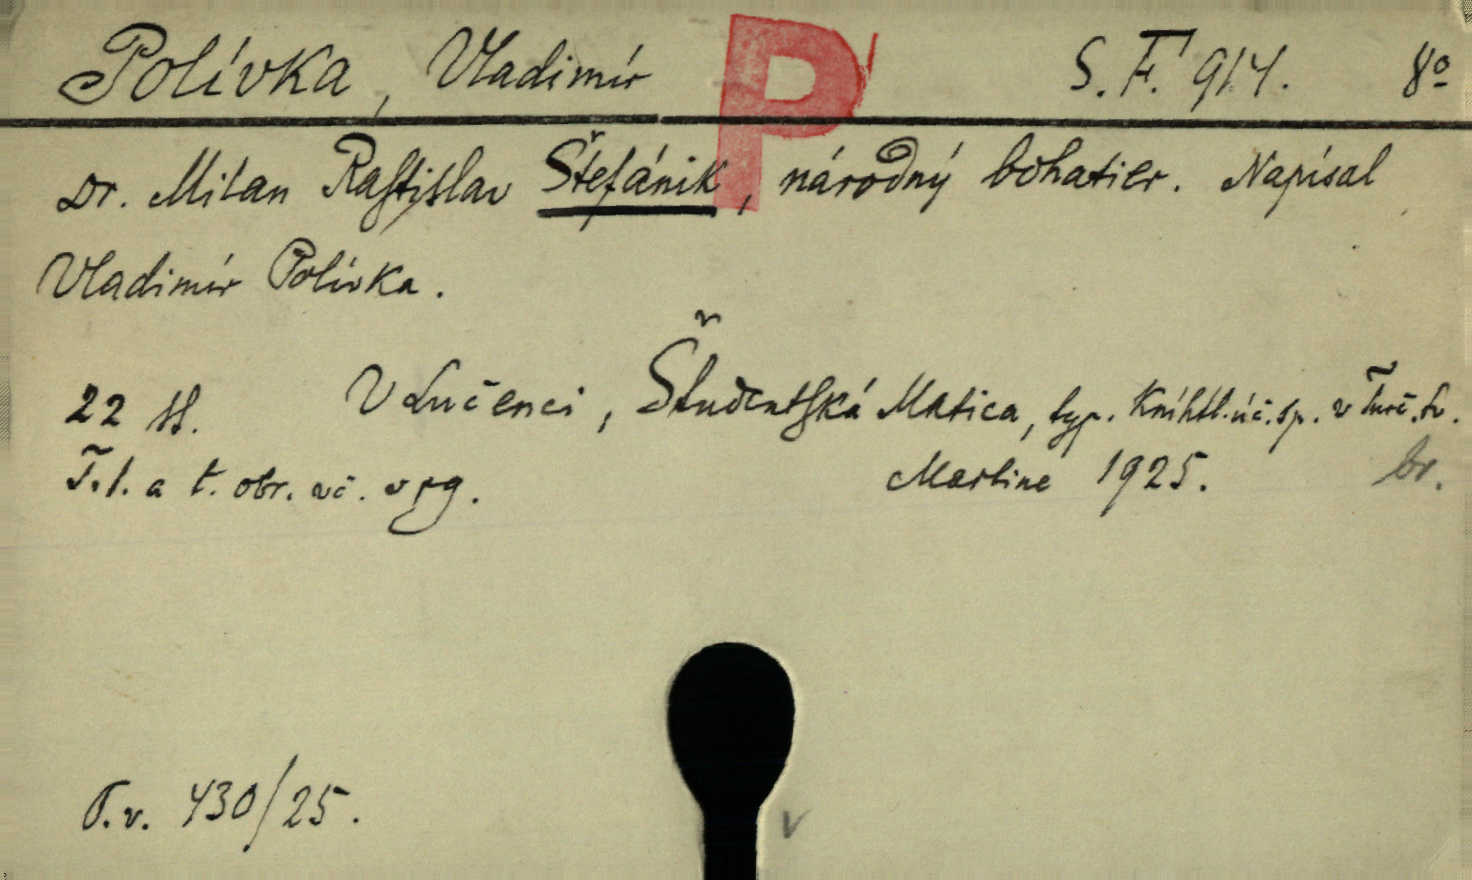 Polívka, Vladimír P S. F. 914. 8º
Dr. Milan Rastislav Štefánik, národný bohatier. Napísal
Vladimír Polívka.
22 st. V Lučenci, Študentská Matica, typ. Kníhtl. úč. sp. v Turč. Sv.
T. l. a t. obr. vč. v pg. Martine 1925. br.
430/25.